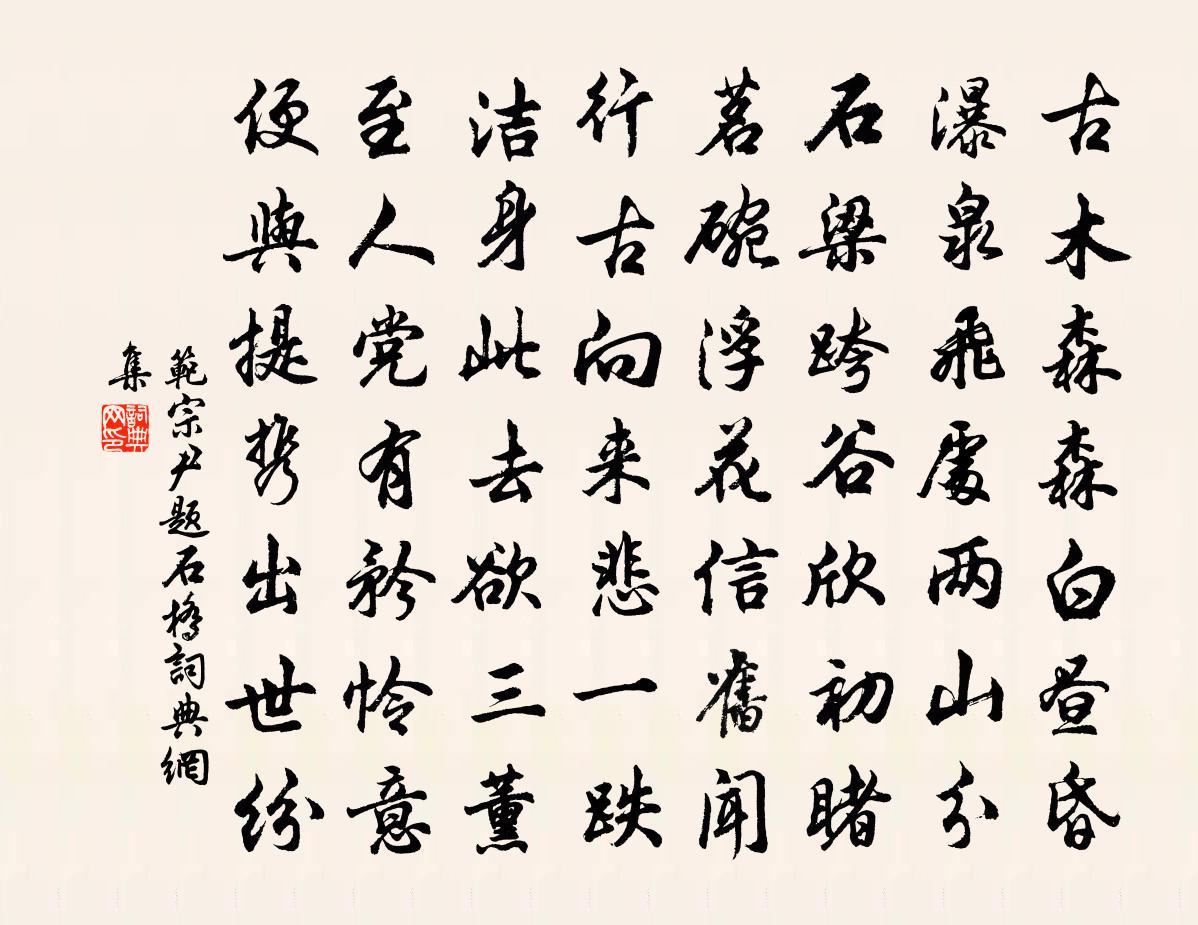 古木森森白昼昏
瀑泉飛處两山分
石梁跨谷欣初睹
茗碗浮花信舊聞
行古向来悲一跌
洁身此去欲三薰
至人党有矜怜意
便與提携出世纷
範宗尹题石橋詞典網
集
詞典网印